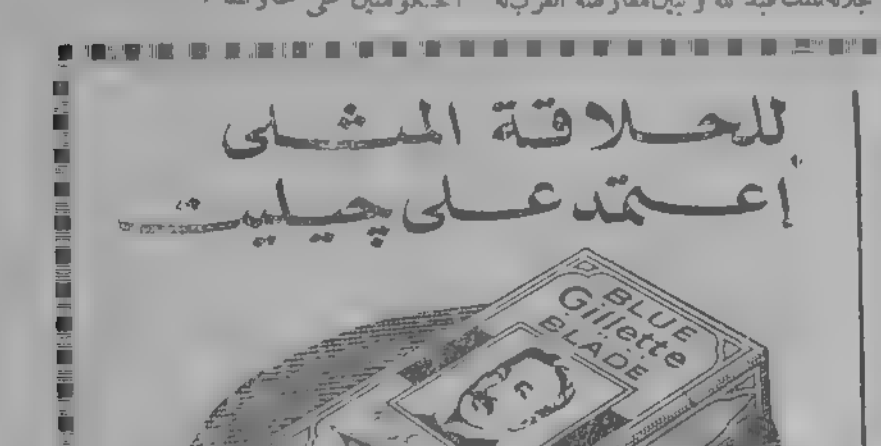 للحلاقة المثلى
أعتمد على چيليت
BLUE
Gillette
BLADE